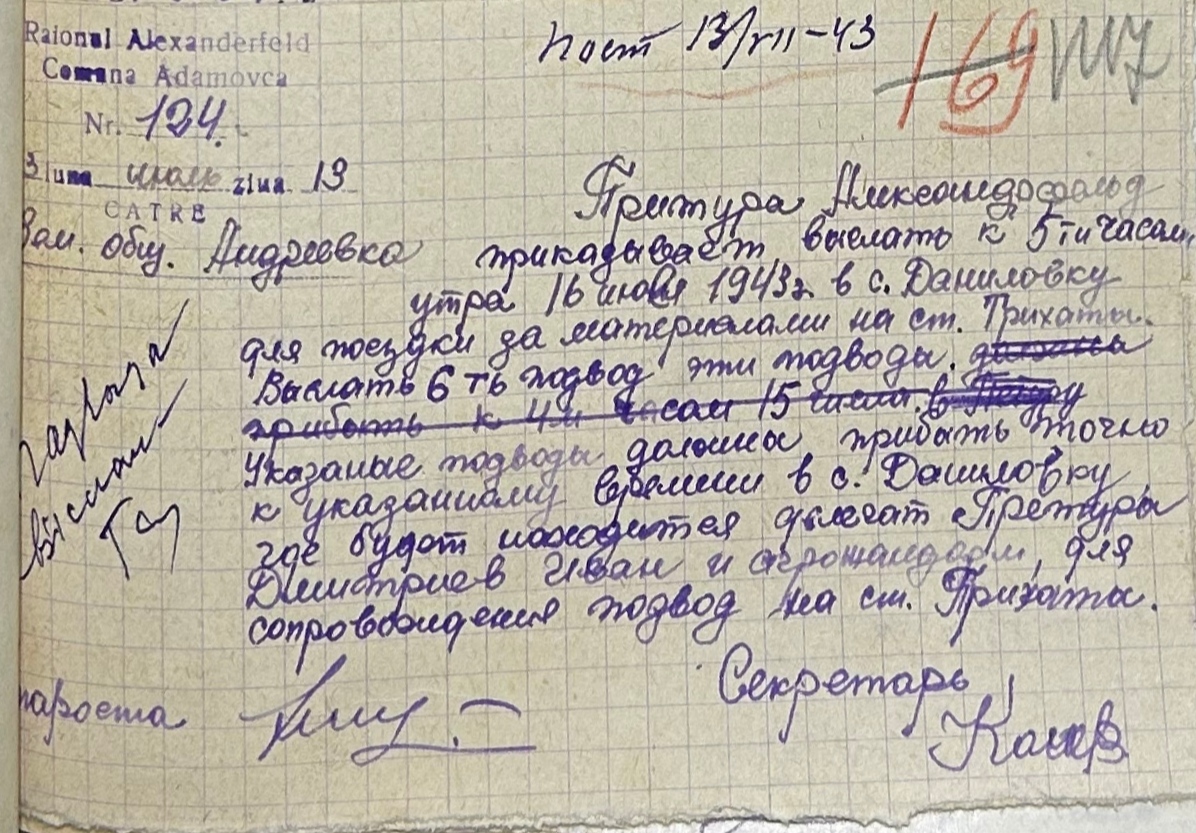 Raionul Alexanderfeld
Comuna Adamovca
Nr. 124.
3 luna июль ziua 13
CATRE
Зам. общ. Андреевка
пост 13/VII-43
169
Притура Александрфельд
приказывает выслать к 5ти часам
утра 16 июля 1943г. в с. Даниловку
для поездки за материалами на ст. Трихаты.
Выслать 6 ть подвод эти подводы. должны
прибыть к 4м часам 15 числа. в
Указаные подводы должны прибыть точно
к указанному времени в с. Даниловку,
где будет находится делегат Претуры
Димитриев Иван и агрожандарм, для
сопровождения подвод на ст. Трихаты.
выслать
тароста
Секретарь